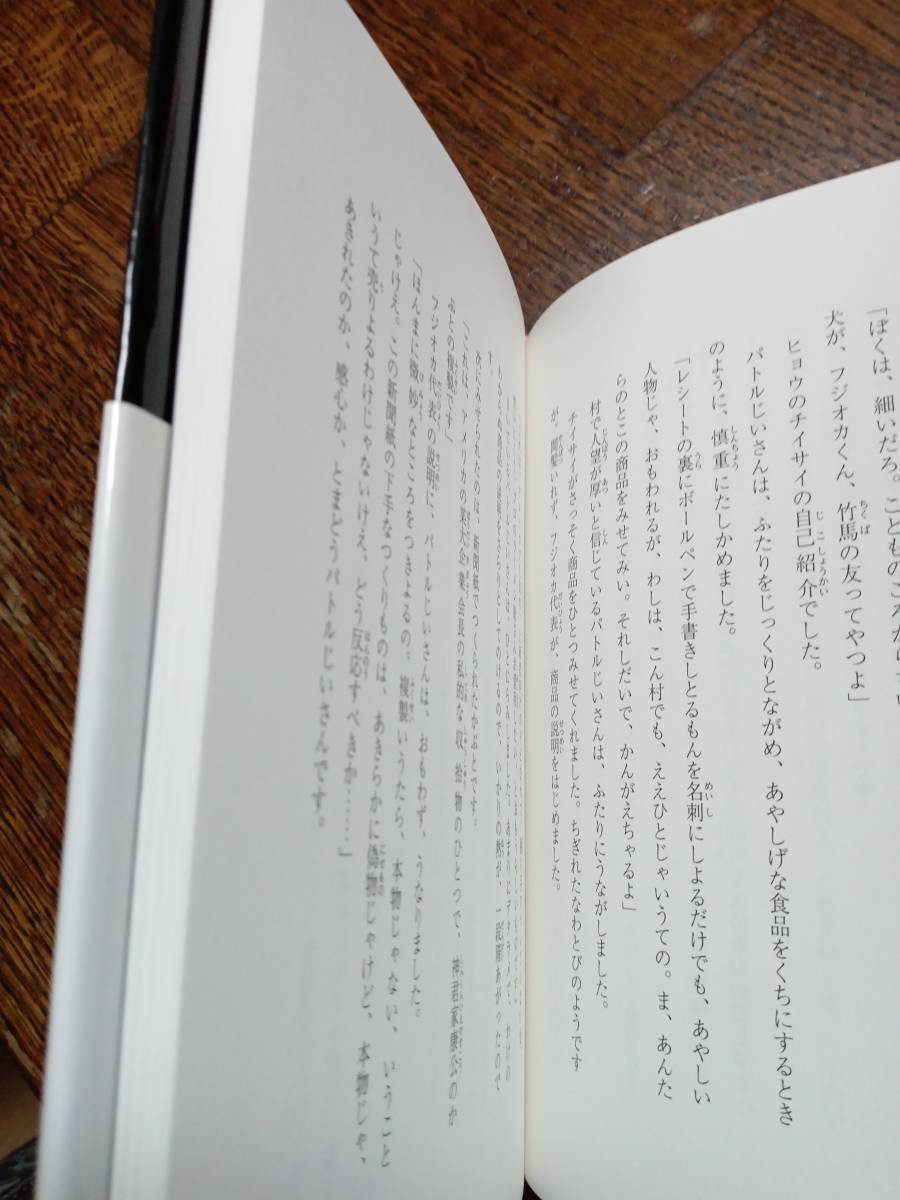 「ぼくは、細いだろ。こどものころから
犬が、フジオカくん、竹馬の友ってやつよ」
ヒョウのチイサイの自己紹介でした。
バトルじいさんは、ふたりをじっくりとながめ、あやしげな食品をくちにするとき
のように、慎重にたしかめました。
「レシートの裏にボールペンで手書きしとるもんを名刺にしよるだけでも、あやしい
人物じゃ、おもわれるが、わしは、こん村でも、ええひとじゃいうての。ま、あんた
らのとこの商品をみせてみい。それしだいで、かんがえちゃるよ」
村で人望が厚いと信じているバトルじいさんは、ふたりにうながしました。
チイサイがさっそく商品をひとつみせてくれました。ちぎれたなわとびのようです
が。間髪いれず、フジオカ代表が、商品の説明をはじめました。
す。
次にみせられたのは、新聞紙でつくられたかぶとです。
「これは、アメリカの某大企業会長の私的な収拾物のひとつで、神君家康公のか
ぶとの複製です」
フジオカ代表の説明に、バトルじいさんは、おもわず、うなりました。
「ほんまに微妙なところをつきよるの。複製いうたら、本物じゃない、いうこと
じゃけえ。この新聞紙の下手なつくりものは、あきらかに偽物じゃけど、本物じゃ、
いうて売りよるわけじゃないけえ、どう反応すべきか……」
あきれたのか、感心か、とまどうバトルじいさんです。